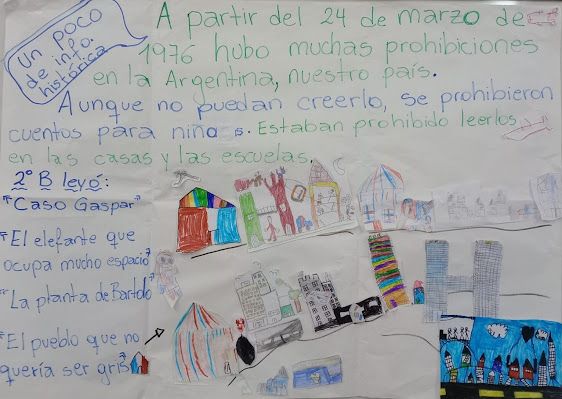 Un poco
de info.
histórica
A partir del 24 de marzo de
1976 hubo muchas prohibiciones
en la Argentina, nuestro país.
Aunque no puedan creerlo, se prohibieron
cuentos para niños. Estaban prohibido leerlos
en las casas y las escuelas.
2° B leyó:
"Caso Gaspar"
"El elefante que
ocupa mucho espacio"
"La planta de Bartolo"
"El pueblo que no
quería ser gris"